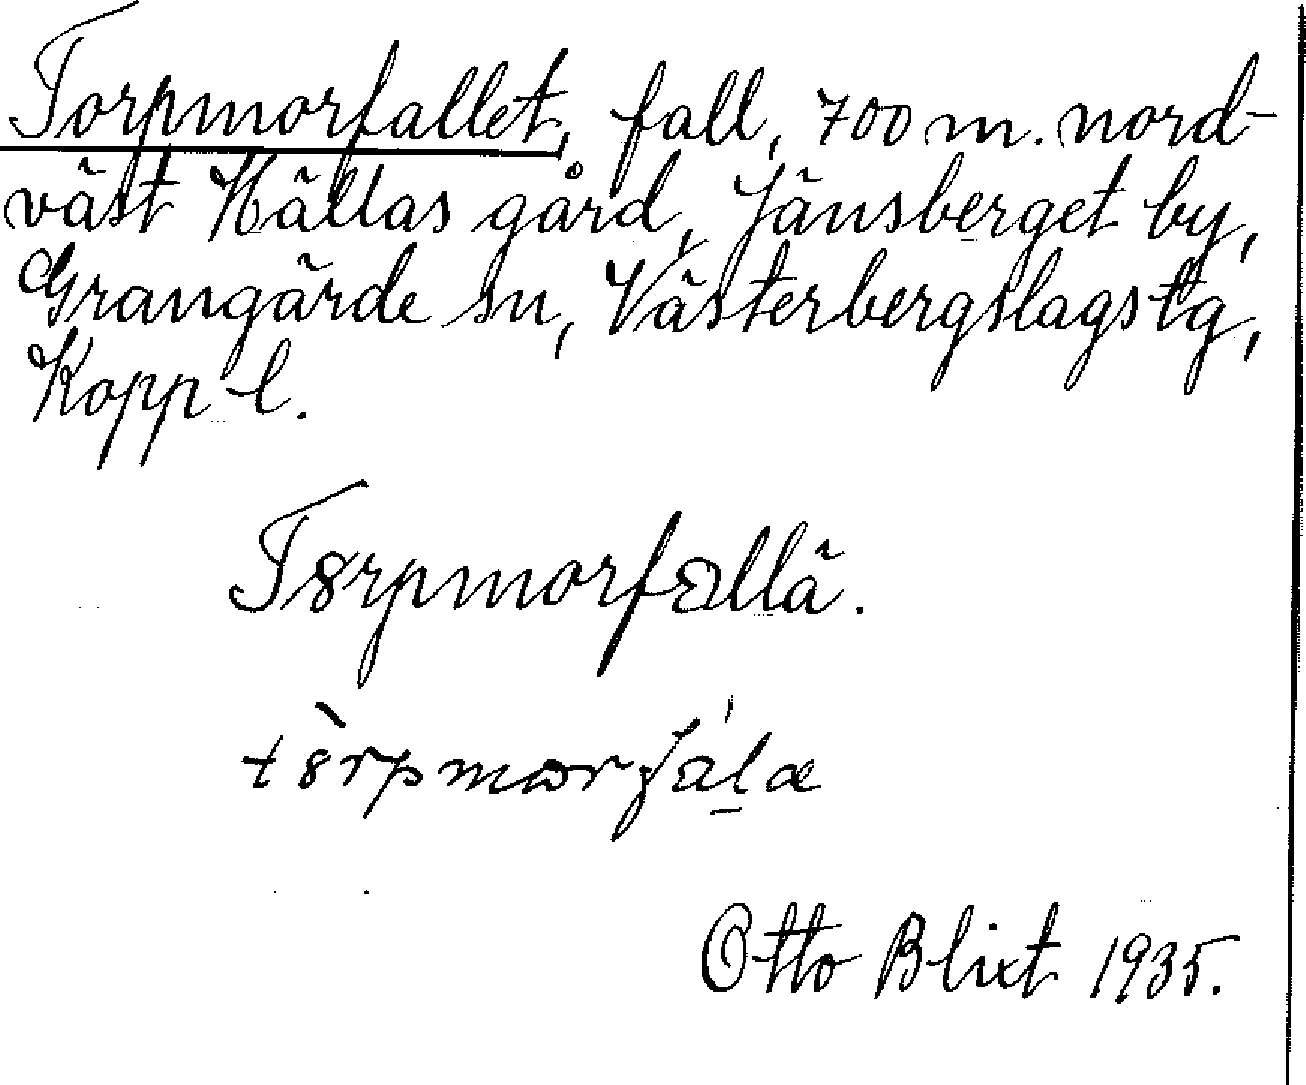 Torpmorfallet, fall, 700 m. nord-
väst Hällas gård, Jänsberget by,
Grangärde sn, Västerbergslags tg,
Kopp l.
T8rpmorfallä.
t8̀rpmɷrfáḻæ
Otto Blixt 1935.